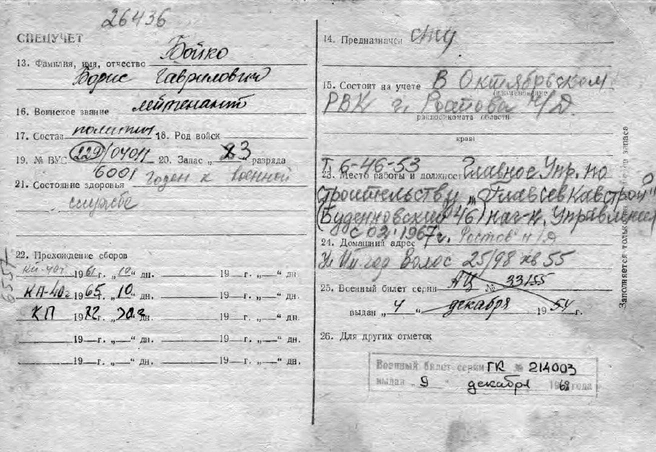 26436
СПЕЦУЧЕТ
13. Фамилия, имя, отчество Бойко
Борис Гаврилович
16. Воинское звание лейтенант
17. Состав политич 18. Род войск
19. № ВУС 229/04011 20. Запас „23 разряда
6001
21. Состояние здоровья Годен к военной
службе
22. Прохождение сборов
1961 г. „10„ дн. 19— г. „—„ дн.
КП-40г 1965 г. 10 дн. 19— г. „—„ дн.
КП 1972 г. дн. 19— г. „—„ дн.
19— г. „—„ дн. 19— г. „—„ дн.
19— г. „—„ дн. 19— г. „—„ дн.
6557
14. Предназначен
15. Состоит на учете В Октябрьском
РВК г. Ростова Н/Д.
военкомата области
края
Т 6-46-53
23. Место работы и должность Главное Упр. по
строительству „Главсевкавстрой"
(Буденновский 46) нач-к. Управления
с 02. 1967 г.
24. Домашний адрес г. Ростов н/Д
25/98 кв 55
25. Военный билет серии АЦ № 33155
выдан „4„ декабря 1954 г.
26. Для других отметок
Военный билет серии ГК № 214003
выдан 9 декабря 1968 г.
Заполняется только запаса